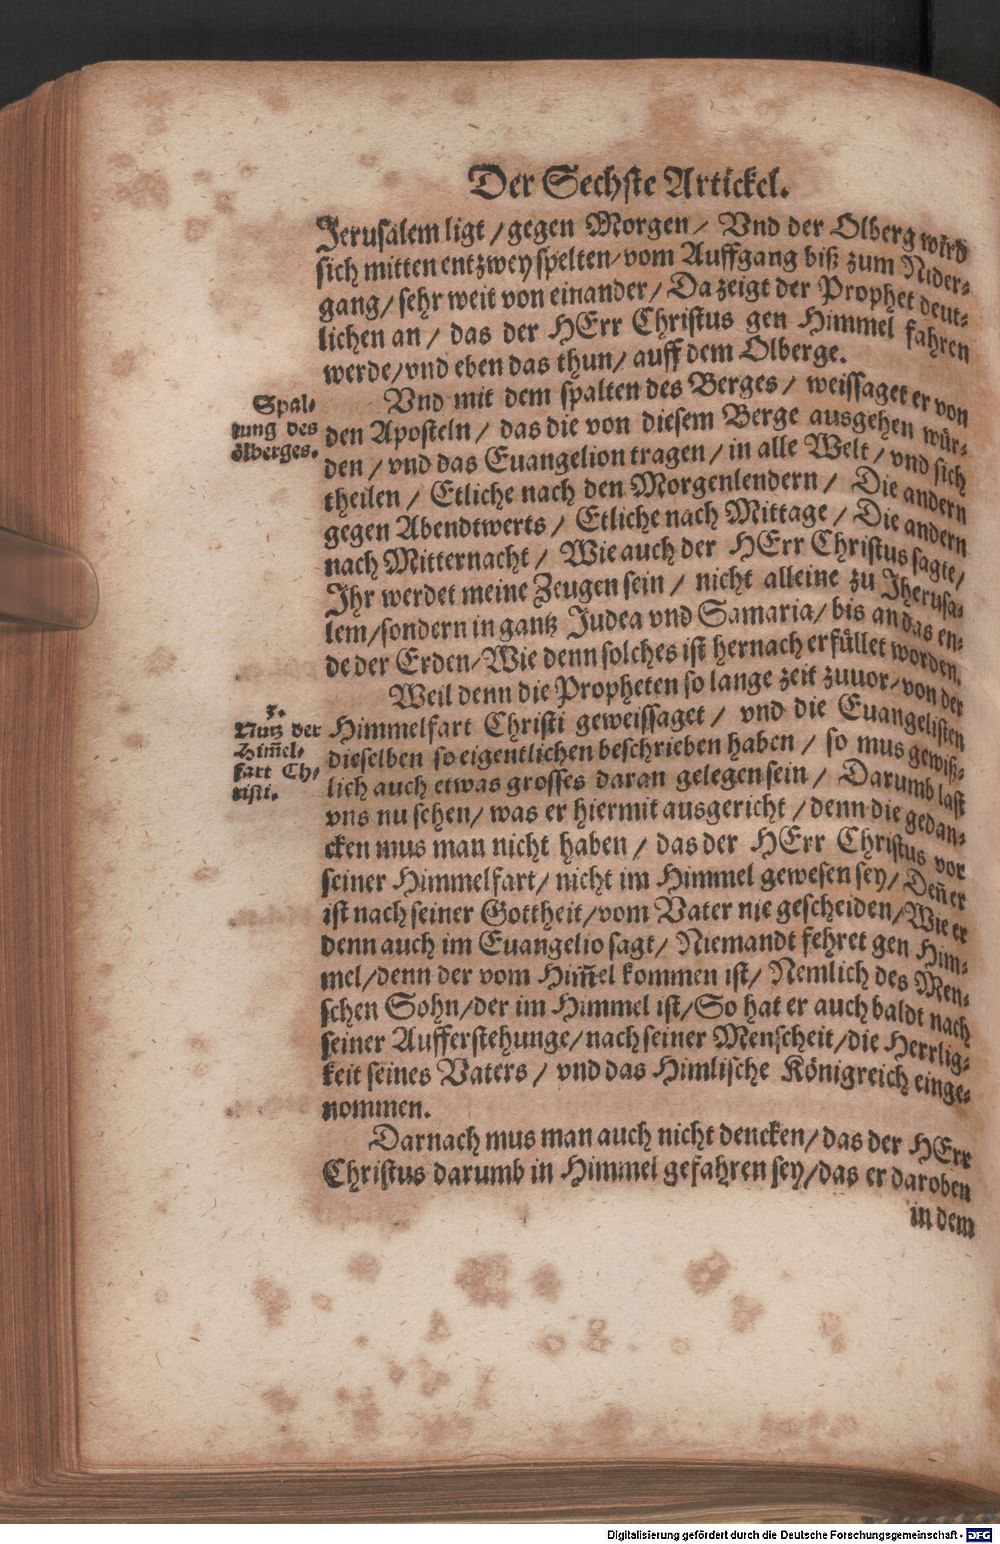 Der Sechste Artickel.
Jerusalem ligt / gegen Morgen / Vnd der Olberg wird
sich mitten entzwey spelten / vom Auffgang biß zum Nider-
gang / sehr weit von einander / Da zeigt der Prophet deut-
lichen an / das der HErr Christus gen Himmel fahren
werde / vnd eben das thun / auff dem Olberge.
Spal-
tung des
ölberges.
Vnd mit dem spalten des Berges / weissaget er von
den Aposteln / das die von diesem Berge ausgehen wür-
den / vnd das Euangelion tragen / in alle Welt / vnd sich
theilen / Etliche nach den Morgenlendern / Die andern
gegen Abendtwerts / Etliche nach Mittage / Die andern
nach Mitternacht / Wie auch der HErr Christus sagte /
Ihr werdet meine Zeugen sein / nicht alleine zu Jherusa-
lem / sondern in gantz Judea vnd Samaria / bis an das en-
de der Erden / Wie denn solches ist hernach erfüllet worden.
3.
Nutz der
Him̃el-
fart Ch-
risti.
Weil denn die Propheten so lange zeit zuuor / von der
Himmelfart Christi geweissaget / vnd die Euangelisten
dieselben so eigentlichen beschrieben haben / so mus gewiß-
lich auch etwas grosses daran gelegen sein / Darumb last
vns nu sehen / was er hiermit ausgericht / denn die gedan-
cken mus man nicht haben / das der HErr Christus vor
seiner Himmelfart / nicht im Himmel gewesen sey / Den̄ er
ist nach seiner Gottheit / vom Vater nie gescheiden / Wie er
denn auch im Euangelio sagt / Niemandt fehret gen Him-
mel / denn der vom Him̃el kommen ist / Nemlich des Men-
schen Sohn / der im Himmel ist / So hat er auch baldt nach
seiner Aufferstehunge / nach seiner Menscheit / die Herrlig-
keit seines Vaters / vnd das Himlische Königreich einge-
nommen.
Darnach mus man auch nicht dencken / das der HErr
Christus darumb in Himmel gefahren sey / das er daroben
in dem
Digitalisierung gefördert durch die Deutsche Forschungsgemeinschaft - DFG